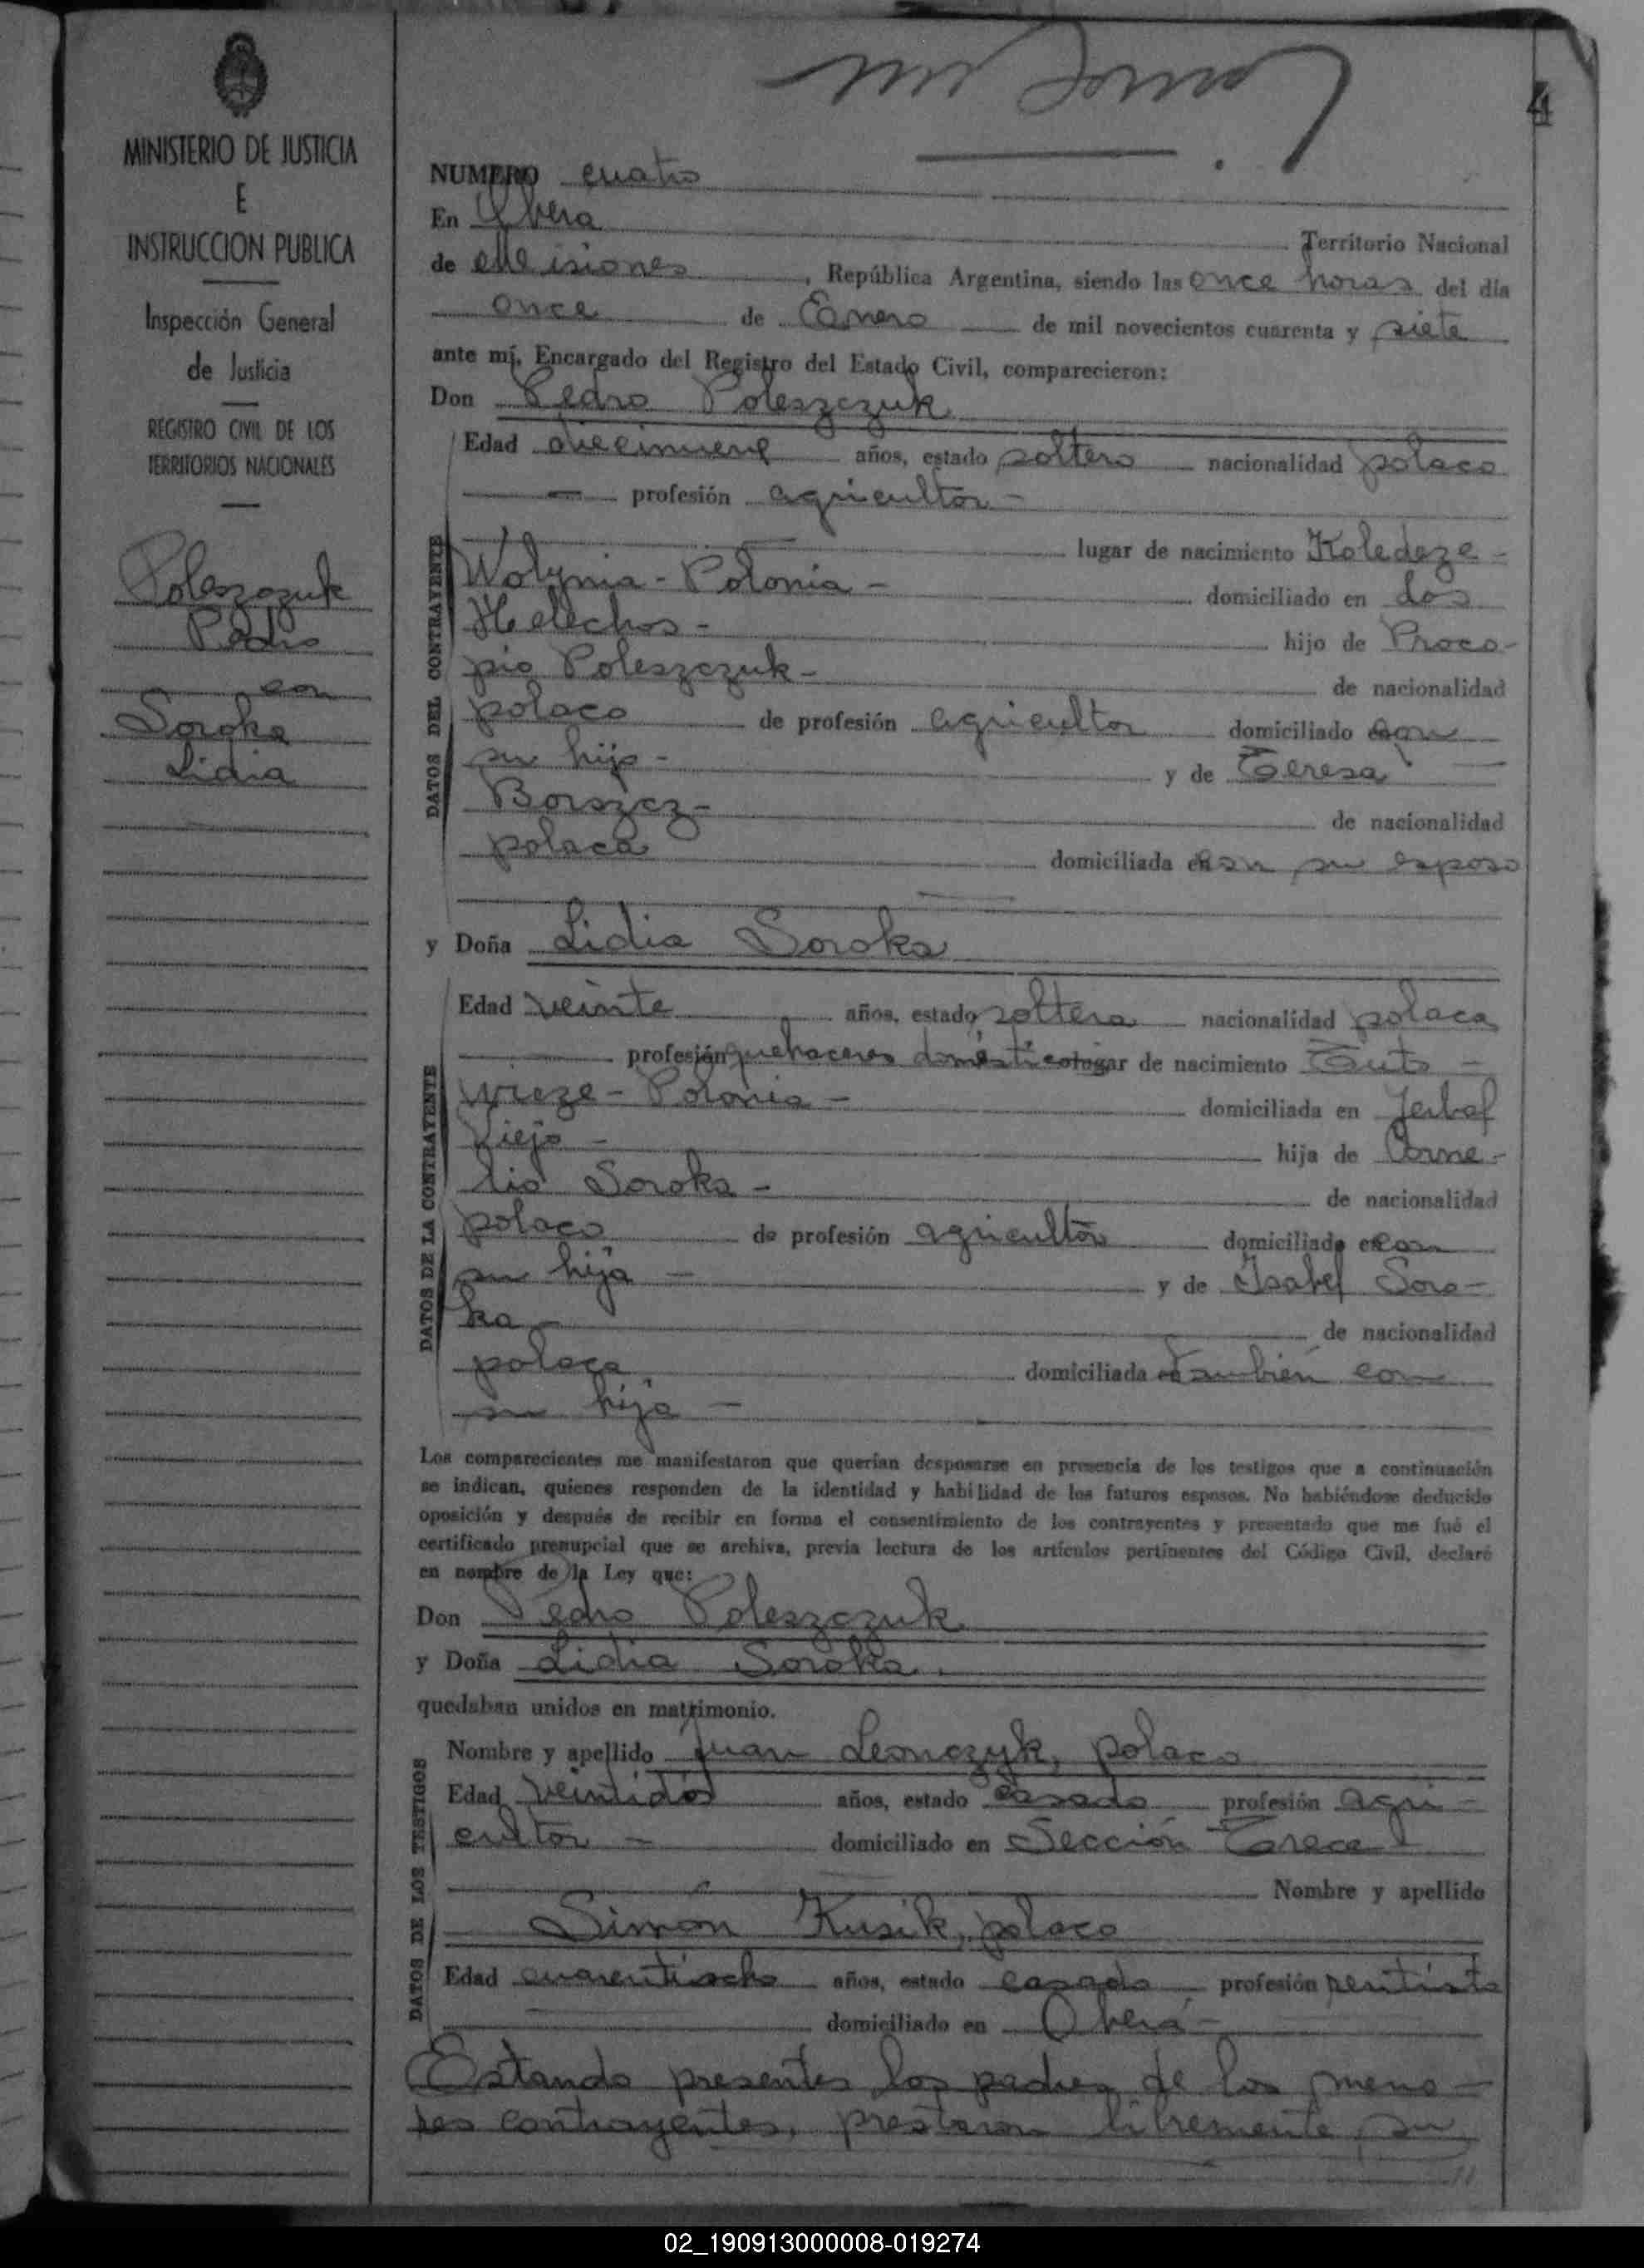 4
MINISTERIO DE JUSTICIA
E
INSTRUCCION PUBLICA
Inspección General
de Justicia
REGISTRO CIVIL DE LOS
TERRITORIOS NACIONALES
Poleszczuk
Pedro
con
Soroka
Lidia
NUMERO cuatro
En Oberá Territorio Nacional
de Misiones, República Argentina, siendo las once horas del día
once de Enero de mil novecientos cuarenta y siete
ante mí, Encargado del Registro del Estado Civil, comparecieron:
Don Pedro Poleszczuk
Edad diecinueve años, estado soltero nacionalidad polaco
profesión agricultor -
lugar de nacimiento Koledeze -
Wolynia - Polonia - domiciliado en dos
Helechos - hijo de Proco-
pio Poleszczuk - de nacionalidad
polaco de profesión agricultor domiciliado con
su hijo - y de Teresa
Borszcz - de nacionalidad
polaca domiciliada con su esposo
y Doña Lidia Soroka
Edad veinte años, estado soltera nacionalidad polaca
profesión quehaceres domésticos lugar de nacimiento
- Polonia - domiciliada en Yerbal
Viejo - hija de Corne-
lio Soroka - de nacionalidad
polaco de profesión agricultor domiciliado con
su hija - y de Isabel Soro-
ka - de nacionalidad
polaca domiciliada también con
su hija -
Los comparecientes me manifestaron que querían desposarse en presencia de los testigos que a continuación
se indican, quienes responden de la identidad y habilidad de los futuros esposos. No habiéndose deducido
oposición y después de recibir en forma el consentimiento de los contrayentes y presentado que me fué el
certificado prenupcial que se archiva, previa lectura de los artículos pertinentes del Código Civil, declaré
en nombre de la Ley que:
Don Pedro Poleszczuk
y Doña Lidia Soroka
quedaban unidos en matrimonio.
Nombre y apellido Juan Leonczyk, polaco
Edad veintidós años, estado casado profesión agri-
cultor - domiciliado en Sección Trece
Nombre y apellido
Simón Kusik, polaco
Edad cuarentiocho años, estado casado profesión rentista
domiciliado en Oberá -
Estando presentes los padres de los meno-
res contrayentes, prestaron libremente su
DATOS DEL CONTRAYENTE
DATOS DE LA CONTRAYENTE
DATOS DE LOS TESTIGOS
02_190913000008-019274